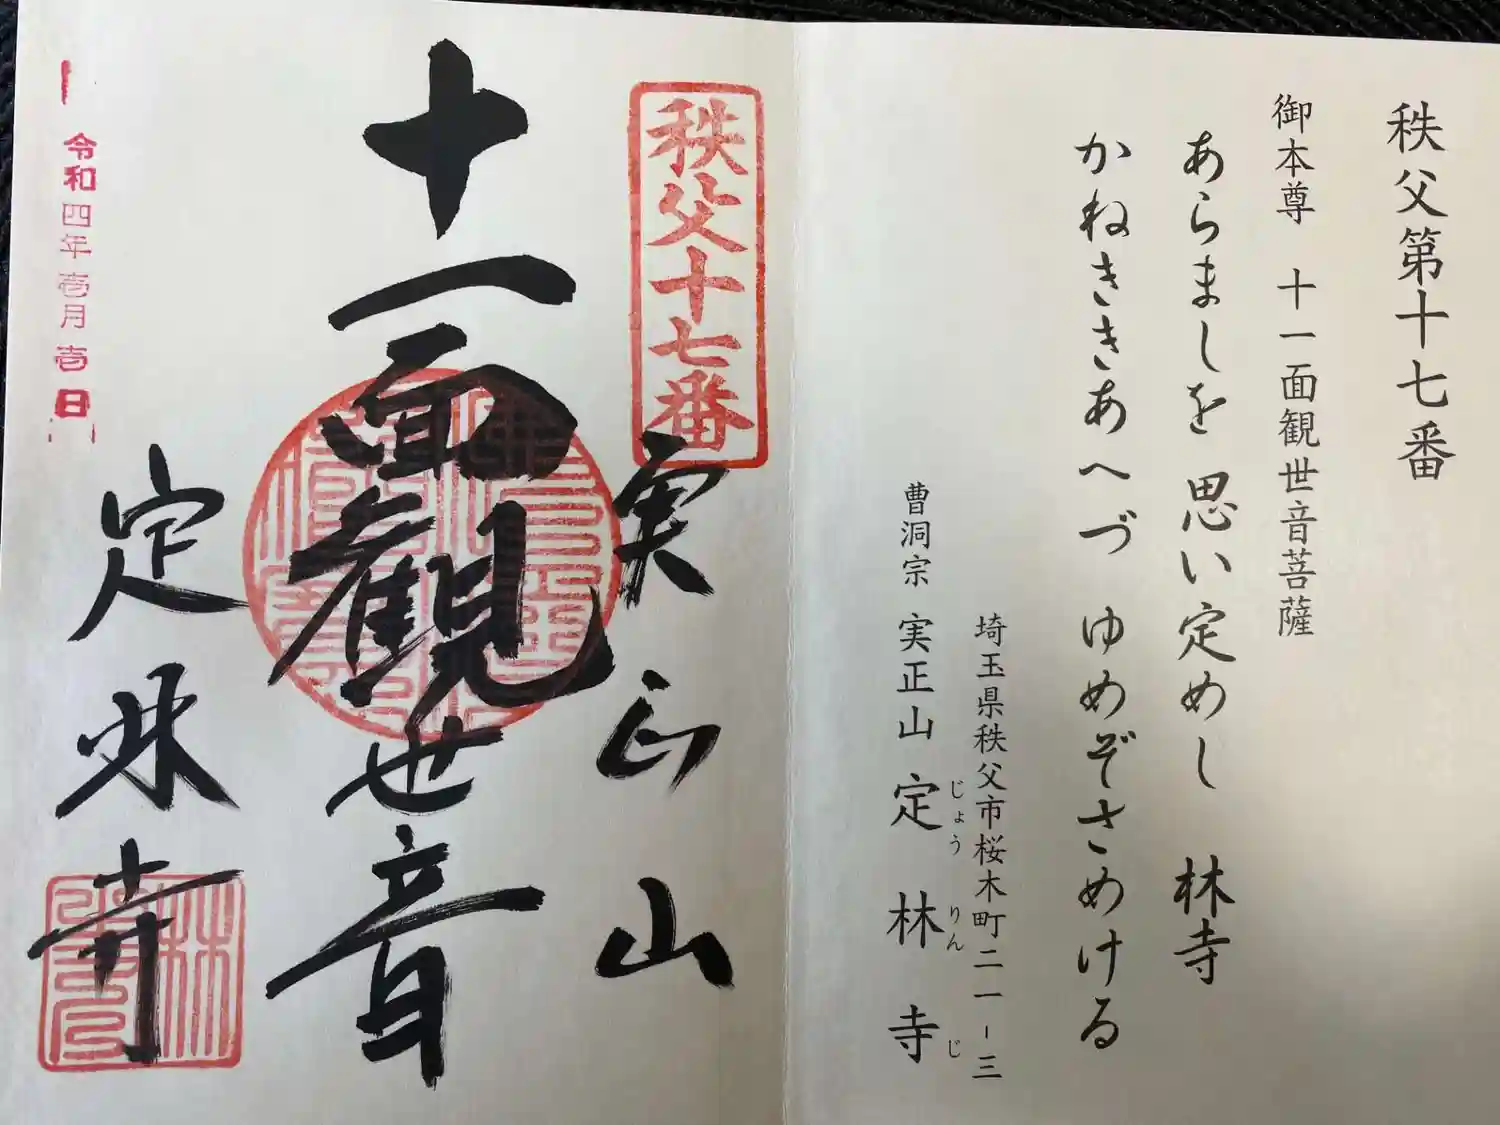 秩父第十七番
御本尊 十一面観世音菩薩
あらましを 思い定めし 林寺
かねききあへづ ゆめぞさめける
埼玉県秩父市桜木町二一-三
曹洞宗 実正山 定林寺
じょう りん じ
秩父十七番
実正山
十一面観世音
定林寺
令和四年壱月壱日